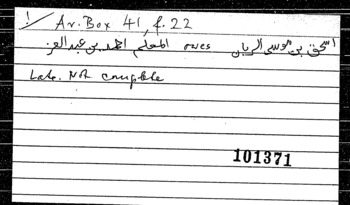 1/ Ar. Box 41, f. 22
اسحق بن موسى الربان owes المعلم احمد بن عبد العز
Late. Not complete
101371